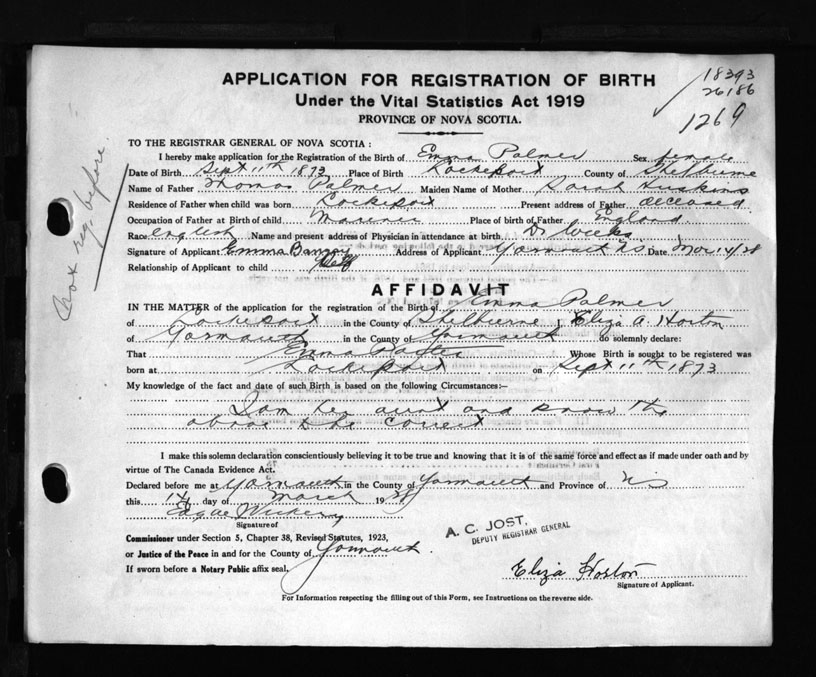 APPLICATION FOR REGISTRATION OF BIRTH
Under the Vital Statistics Act 1919
PROVINCE OF NOVA SCOTIA.
18393
26186
1269
TO THE REGISTRAR GENERAL OF NOVA SCOTIA :
I hereby make application for the Registration of the Birth of Emma Palmer Sex female
Date of Birth Sept 11th 1873 Place of Birth Lockeport County of Shelburne
Name of Father Thomas Palmer Maiden Name of Mother Sarah Huskins
Residence of Father when child was born Lockeport Present address of Father deceased
Occupation of Father at Birth of child Mariner Place of birth of Father England
Race English Name and present address of Physician in attendance at birth Dr Weeks
Signature of Applicant Emma Address of Applicant Yarmouth NS. Date Nov 14/28
Relationship of Applicant to child Self
reg. before.
AFFIDAVIT
IN THE MATTER of the application for the registration of the Birth of Emma Palmer
of Lockeport in the County of Shelburne I, Eliza A. Horton
of Yarmouth in the County of Yarmouth do solemnly declare:
That Emma Whose Birth is sought to be registered was
born at Lockeport on Sept 11th 1873
My knowledge of the fact and date of such Birth is based on the following Circumstances:—
I am her aunt and know the
above to be correct
I make this solemn declaration conscientiously believing it to be true and knowing that it is of the same force and effect as if made under oath and by
virtue of The Canada Evidence Act.
Declared before me at Yarmouth in the County of Yarmouth and Province of NS
this 14 day of March 19
Edgar
Signature of
Commissioner under Section 5, Chapter 38, Revised Statutes, 1923,
or Justice of the Peace in and for the County of Yarmouth.
If sworn before a Notary Public affix seal,
A. C. JOST,
DEPUTY REGISTRAR GENERAL
Eliza Horton
Signature of Applicant.
For Information respecting the filling out of this Form, see Instructions on the reverse side.